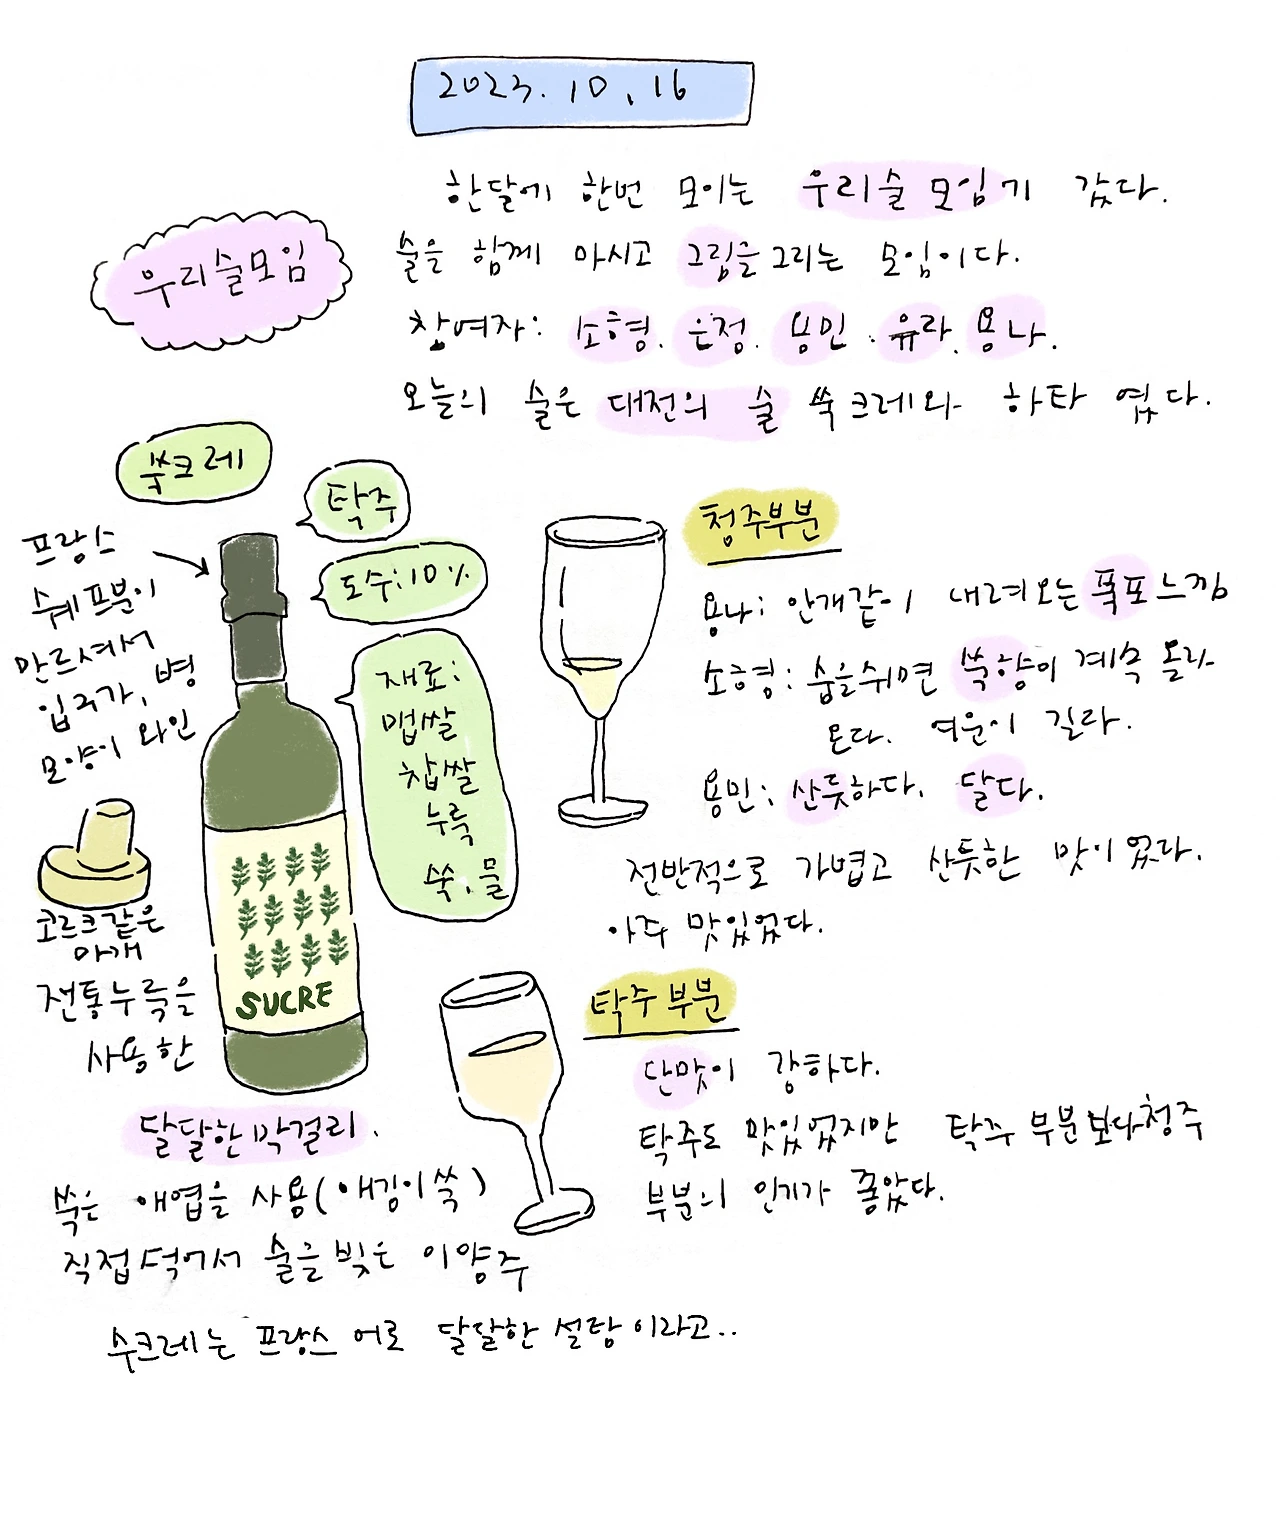 2023.10.16
우리술모임
한달에 한번 모이는 우리술 모임기 갔다.
술을 함께 마시고 그림을 그리는 모임이다.
참여자: 소형. 은정. 용민. 유라. 용나.
오늘의 술은 대전의 술 쑥크레와 하타 였다.
쑥크레
탁주
도수:10%
재료:
맵쌀
찹쌀
누룩
쑥, 물
프랑스
쉐프분이
만드셔서
입구가, 병
모양이 와인
코르크같은
마개
전통누룩을
사용한
달달한 막걸리.
쑥은 애엽을 사용(애깅이쑥)
직접 덖어서 술을 빚은 이양주
수크레는 프랑스 어로 달달한 설탕이라고..
SUCRE
청주부분
용나: 안개같이 내려오는 폭포느낌
소형: 숨을쉬면 쑥향이 계속 올라
온다. 여운이 길다.
용민: 산듯하다. 달다.
전반적으로 가볍고 산듯한 맛이 였다.
아주 맛있었다.
탁주부분
단맛이 강하다.
탁주도 맛있었지만 탁주 부분보다 청주
부분의 인기가 좋았다.